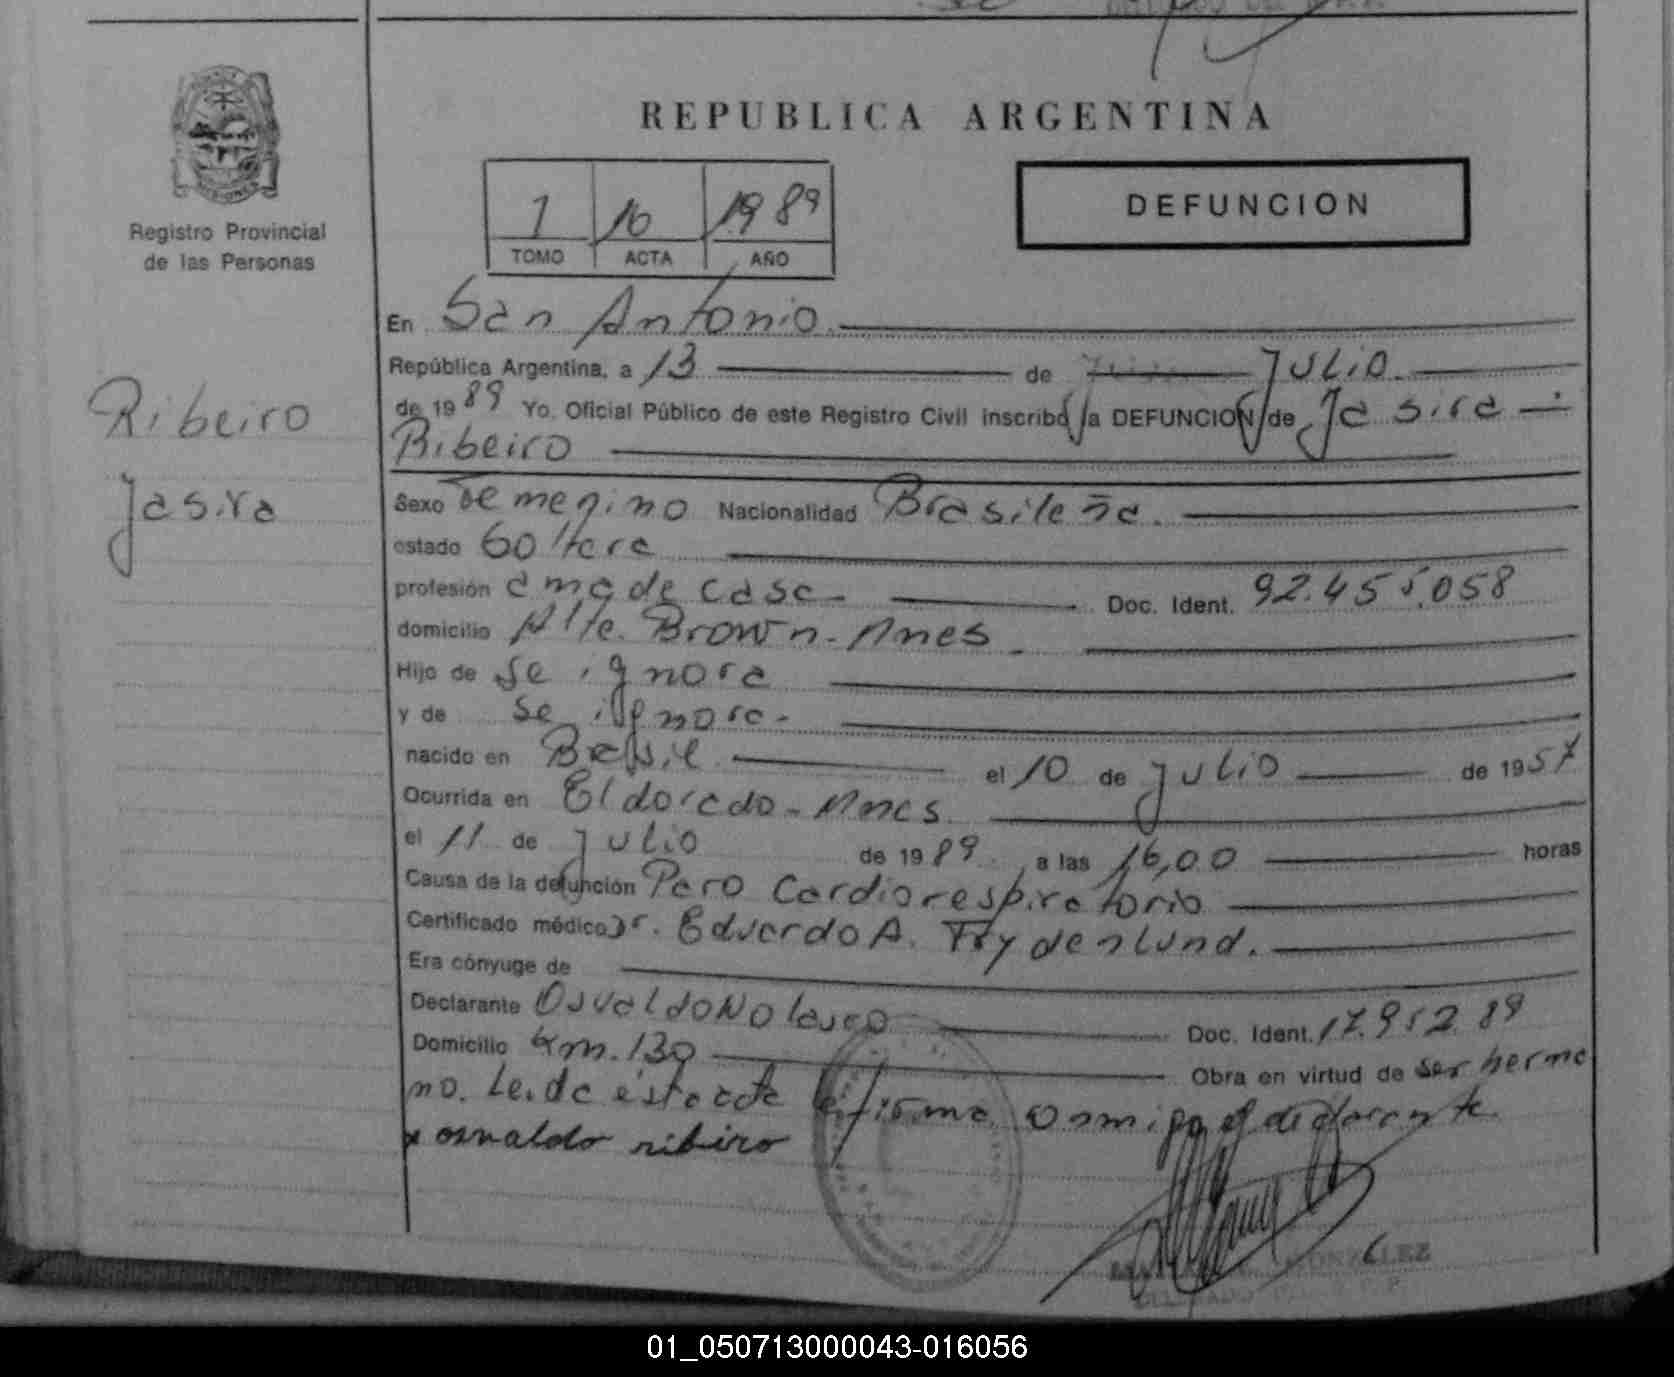 REPUBLICA ARGENTINA
Registro Provincial
de las Personas
1 10 1989
TOMO ACTA AÑO
DEFUNCION
Ribeiro
Jasira
En San Antonio.
República Argentina, a 13 de JULIO.
de 1989 Yo. Oficial Público de este Registro Civil inscribo la DEFUNCION de Jasira
Ribeiro
Sexo Femenino Nacionalidad Brasileña.
estado Soltera
profesión ama de casa- Doc. Ident. 92.455.058
domicilio Alte. Brown-Mnes.
Hijo de Se ignora
y de Se ignora-
nacido en Brasil el 10 de Julio de 1957
Ocurrida en Eldorado-Mnes.
el 11 de Julio de 1989 a las 16,00 horas
Causa de la defunción Paro Cardiorespiratorio
Certificado médico Dr. Eduardo A. Frydenlund.
Era cónyuge de
Declarante Osvaldo Doc. Ident. 17.952.89
Domicilio Km. 130 Obra en virtud de ser herma
no. Leida ésta acta la firma conmigo el declarante.
x osvaldo ribiro
GONZALEZ
01_050713000043-016056